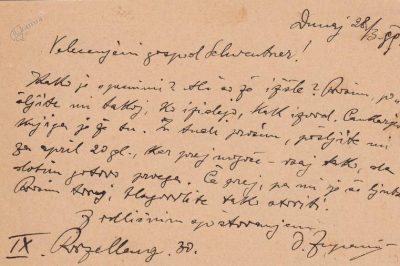 Dunaj 28/3 99.
Velecenjeni gospod Schwentner!
Kako je s pesmimi? Ali so že izšle? Prosim, po-
šljite mi takoj, ko izidejo, kak izvod. Cankarjeva
knjiga je že tu. Tudi prosim, pošljite mi
za april 20 gl., ker prej mogoče – vsaj tako, da
dobim gotovo prvega. Če prej, pa mi je še ljubše.
Prosim torej, blagovolite tako storiti.
Z odličnim spoštovanjem
IX. Porzellang. 30. O. Župančič